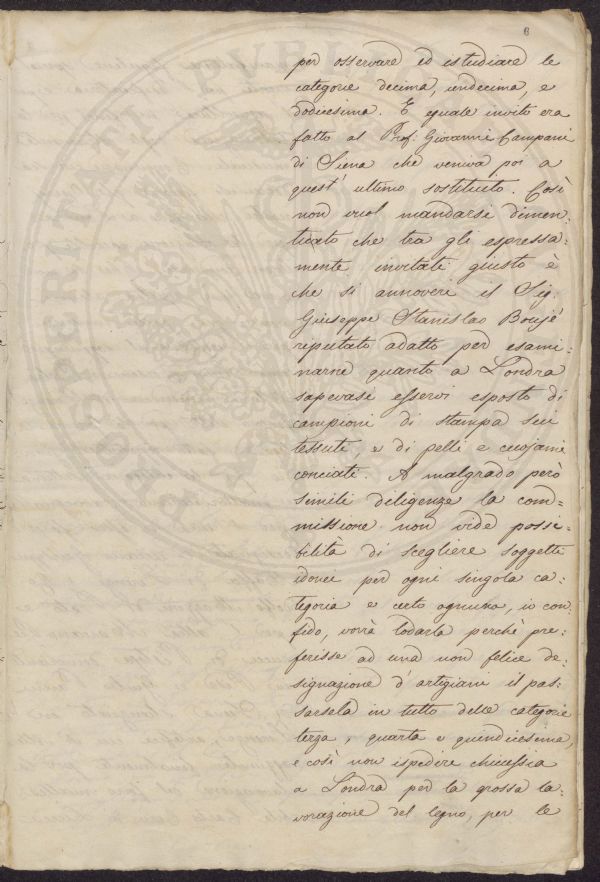 6
per osservare ed istudiare le
categorie decima, undecima, e
dodicesima. E eguale invito era
fatto al Prof. Giovanni Campani
di Siena che veniva poi a
quest' ultimo sostituito. Così
non vuol mandarsi dimen-
ticato che tra gli espressa-
mente invitati giusto è
che si annoveri il Sig.
Giuseppe Stanislao
reputato adatto per esami-
narne quanto a Londra
sapevasi esservi esposto di
campioni di stampa sui
tessuti, e di pelli e cuojami
conciati. A malgrado però
simili diligenze la com-
missione non vide possi-
bilità di scegliere soggetti
idonei per ogni singola ca-
tegoria e certo ognuno, io con-
fido, vorrà lodarla perchè pre-
ferisse ad una non felice de-
signazione d'artigiani il pas-
sarsela in tutto delle categorie
terza, quarta e quindicesima,
e così non ispedire chicessia
a Londra per la grossa la-
vorazione del legno, per le
PROSPERITATI PVBLICAE